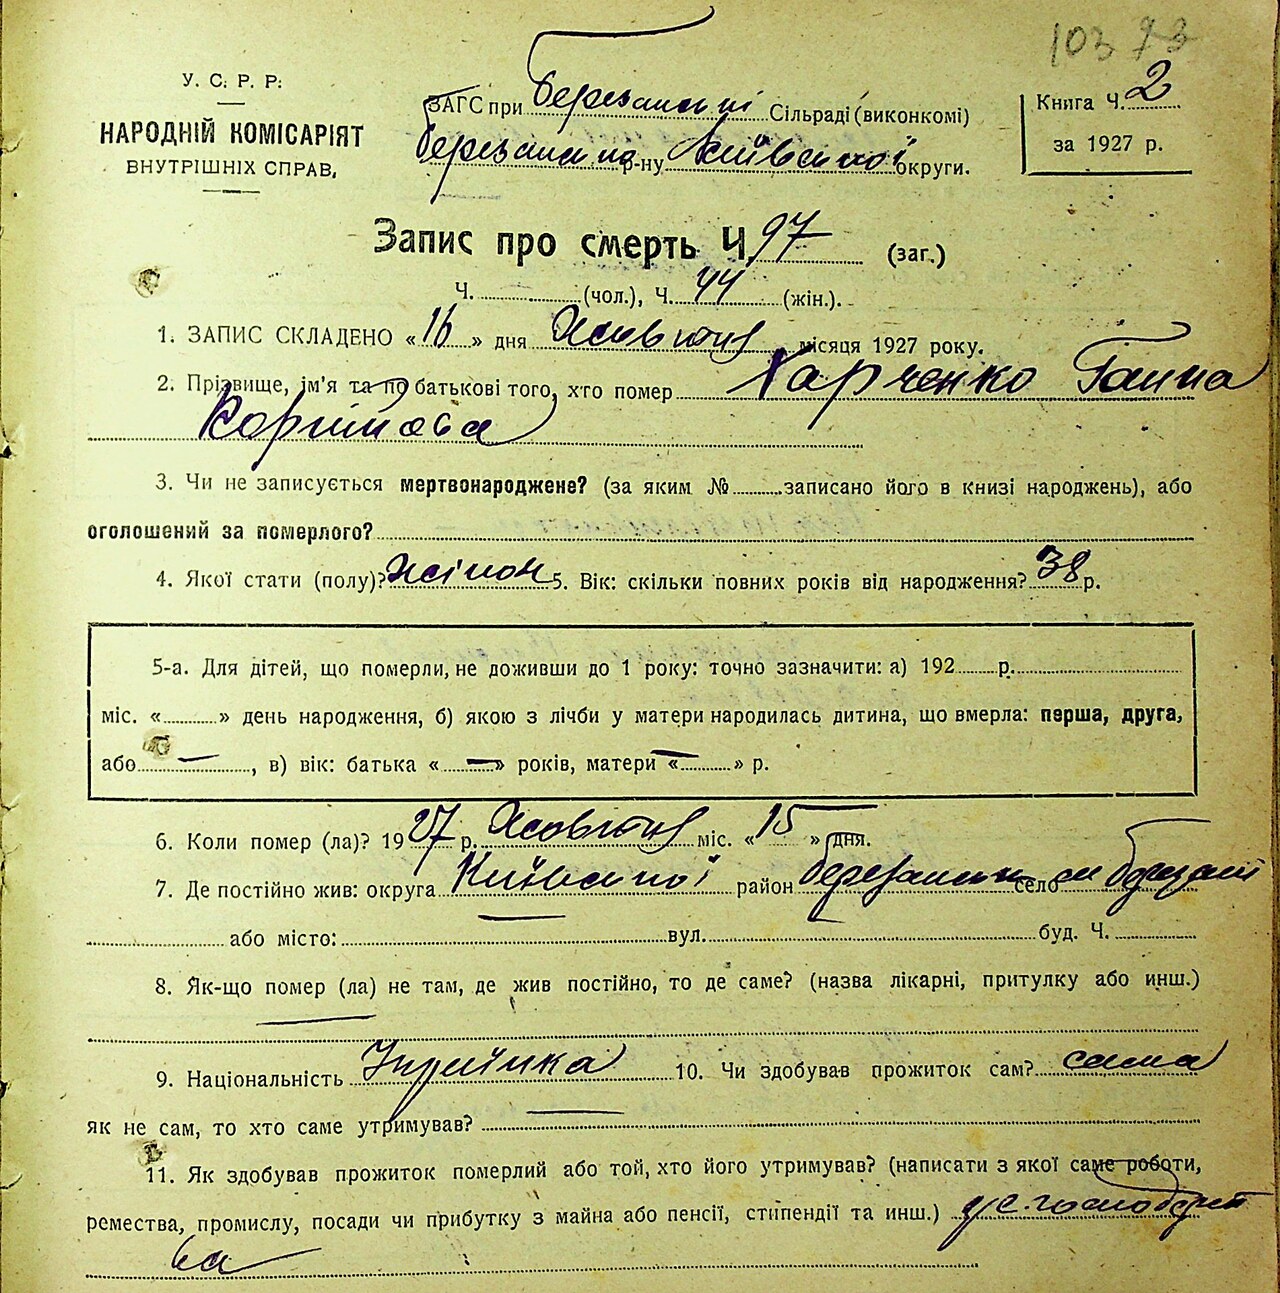 103 73
У. С. Р. Р.
НАРОДНІЙ КОМІСАРІЯТ
ВНУТРІШНІХ СПРАВ,
ЗАГС при Березанські Сільраді (виконкомі)
р-ну Київської округи.
Книга Ч. 2
за 1927 р.
Запис про смерть Ч 97 (заг.)
Ч. (чол.), Ч. 44 (жін.).
1. ЗАПИС СКЛАДЕНО «16» дня Жовтня місяця 1927 року.
2. Прізвище, ім'я та по батькові того, хто помер Харченко Ганна
3. Чи не записується мертвонароджене? (за яким № записано його в книзі народжень), або
оголошений за померлого?
4. Якої стати (полу)? 5. Вік: скільки повних років від народження? 38 р.
5-а. Для дітей, що померли, не доживши до 1 року: точно зазначити: а) 192 р.
міс. « » день народження, б) якою з лічби у матери народилась дитина, що вмерла: перша, друга,
або — , в) вік: батька « — » років, матери « — » р.
6. Коли помер (ла)? 1927 р. Жовтня міс. «15» дня.
7. Де постійно жив: округа Київської район село
або місто: вул. буд. Ч.
8. Як-що помер (ла) не там, де жив постійно, то де саме? (назва лікарні, притулку або инш.)
9. Національність Українка 10. Чи здобував прожиток сам? сама
як не сам, то хто саме утримував?
11. Як здобував прожиток померлий або той, хто його утримував? (написати з якої саме роботи,
ремества, промислу, посади чи прибутку з майна або пенсії, стипендії та инш.)
ва